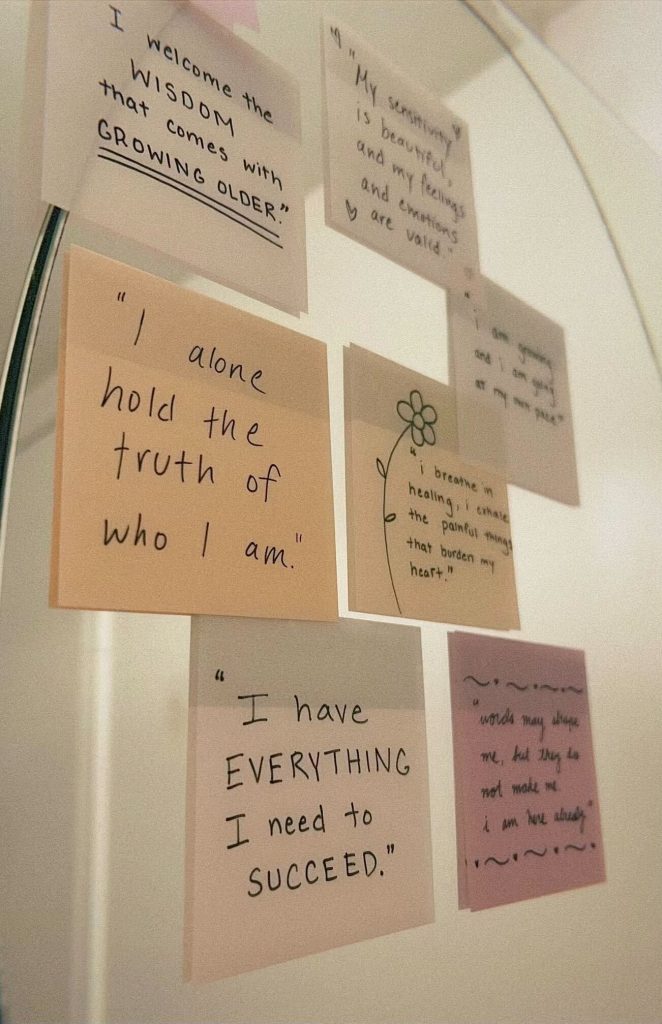 I welcome the
WISDOM
that comes with
GROWING OLDER."
"My sensitivity
is beautiful,
and my feelings
and emotions
are valid."
"i am growing
and i am going
at my own pace"
"I alone
hold the
truth of
who I am."
"i breathe in
healing, i exhale
the painful things
that burden my
heart."
"I have
EVERYTHING
I need to
SUCCEED."
"words may
me, but they do
not made me.
i am here already"